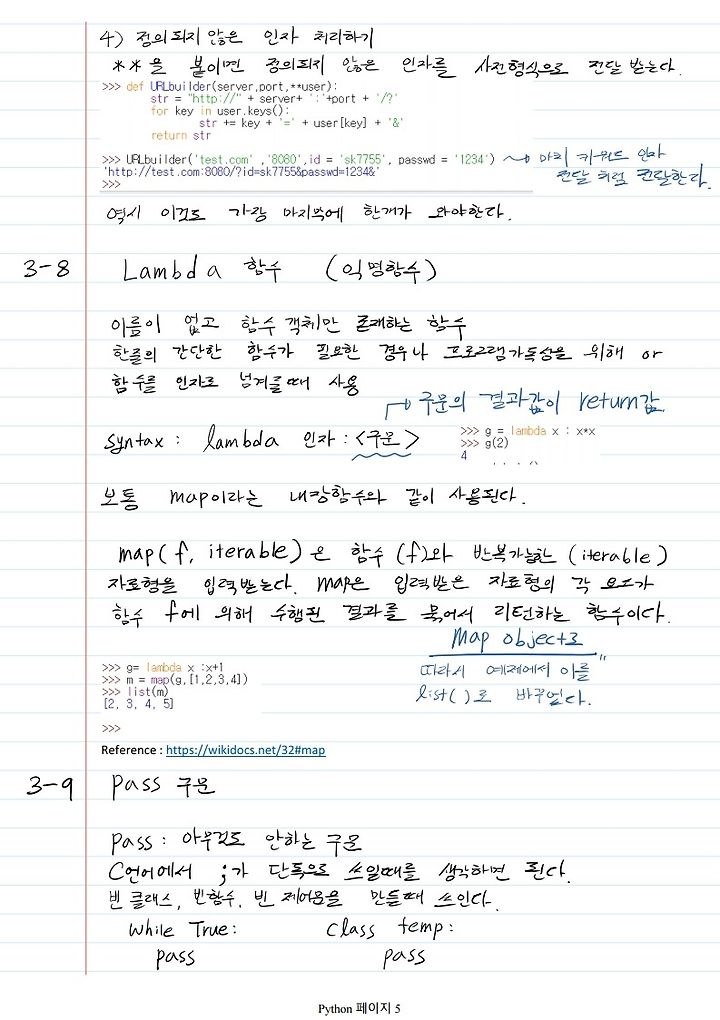 4) 정의되지 않은 인자 처리하기
**을 붙이면 정의되지 않은 인자를 사전형식으로 전달 받는다.
>>> def URLbuilder(server,port,**user):
str = "http://" + server+ ':'+port + '/?'
for key in user.keys():
str += key + '=' + user[key] + '&'
return str
>>> URLbuilder('test.com' ,'8080',id = 'sk7755', passwd = '1234')
'http://test.com:8080/?id=sk7755&passwd=1234&'
>>>
마치 키워드 인자
전달 처럼 전달한다.
역시 이것도 가장 마지막에 한개가 와야한다.
3-8 Lambda 함수 (익명함수)
이름이 없고 함수 객체만 존재하는 함수
한줄의 간단한 함수가 필요한 경우나 프로그램가독성을 위해 or
함수를 인자로 넘겨줄때 사용
구문의 결과값이 return값
syntax : lambda 인자 : <구문>
>>> g = lambda x : x*x
>>> g(2)
4
보통 map이라는 내장함수와 같이 사용된다.
map(f, iterable)은 함수 (f)와 반복가능한 (iterable)
자료형을 입력받는다. map은 입력받은 자료형의 각 요소가
함수 f에 의해 수행된 결과를 묶어서 리턴하는 함수이다.
Map object로
따라서 예제에서 이를
list( )로 바꾸었다.
>>> g= lambda x :x+1
>>> m = map(g,[1,2,3,4])
>>> list(m)
[2, 3, 4, 5]
>>>
Reference : https://wikidocs.net/32#map
3-9 Pass 구문
pass : 아무것도 안하는 구문
C언어에서 ;가 단독으로 쓰일때를 생각하면 된다.
빈 클래스, 빈함수, 빈 제어문을 만들때 쓰인다.
while True: Class temp:
pass pass
Python 페이지 5